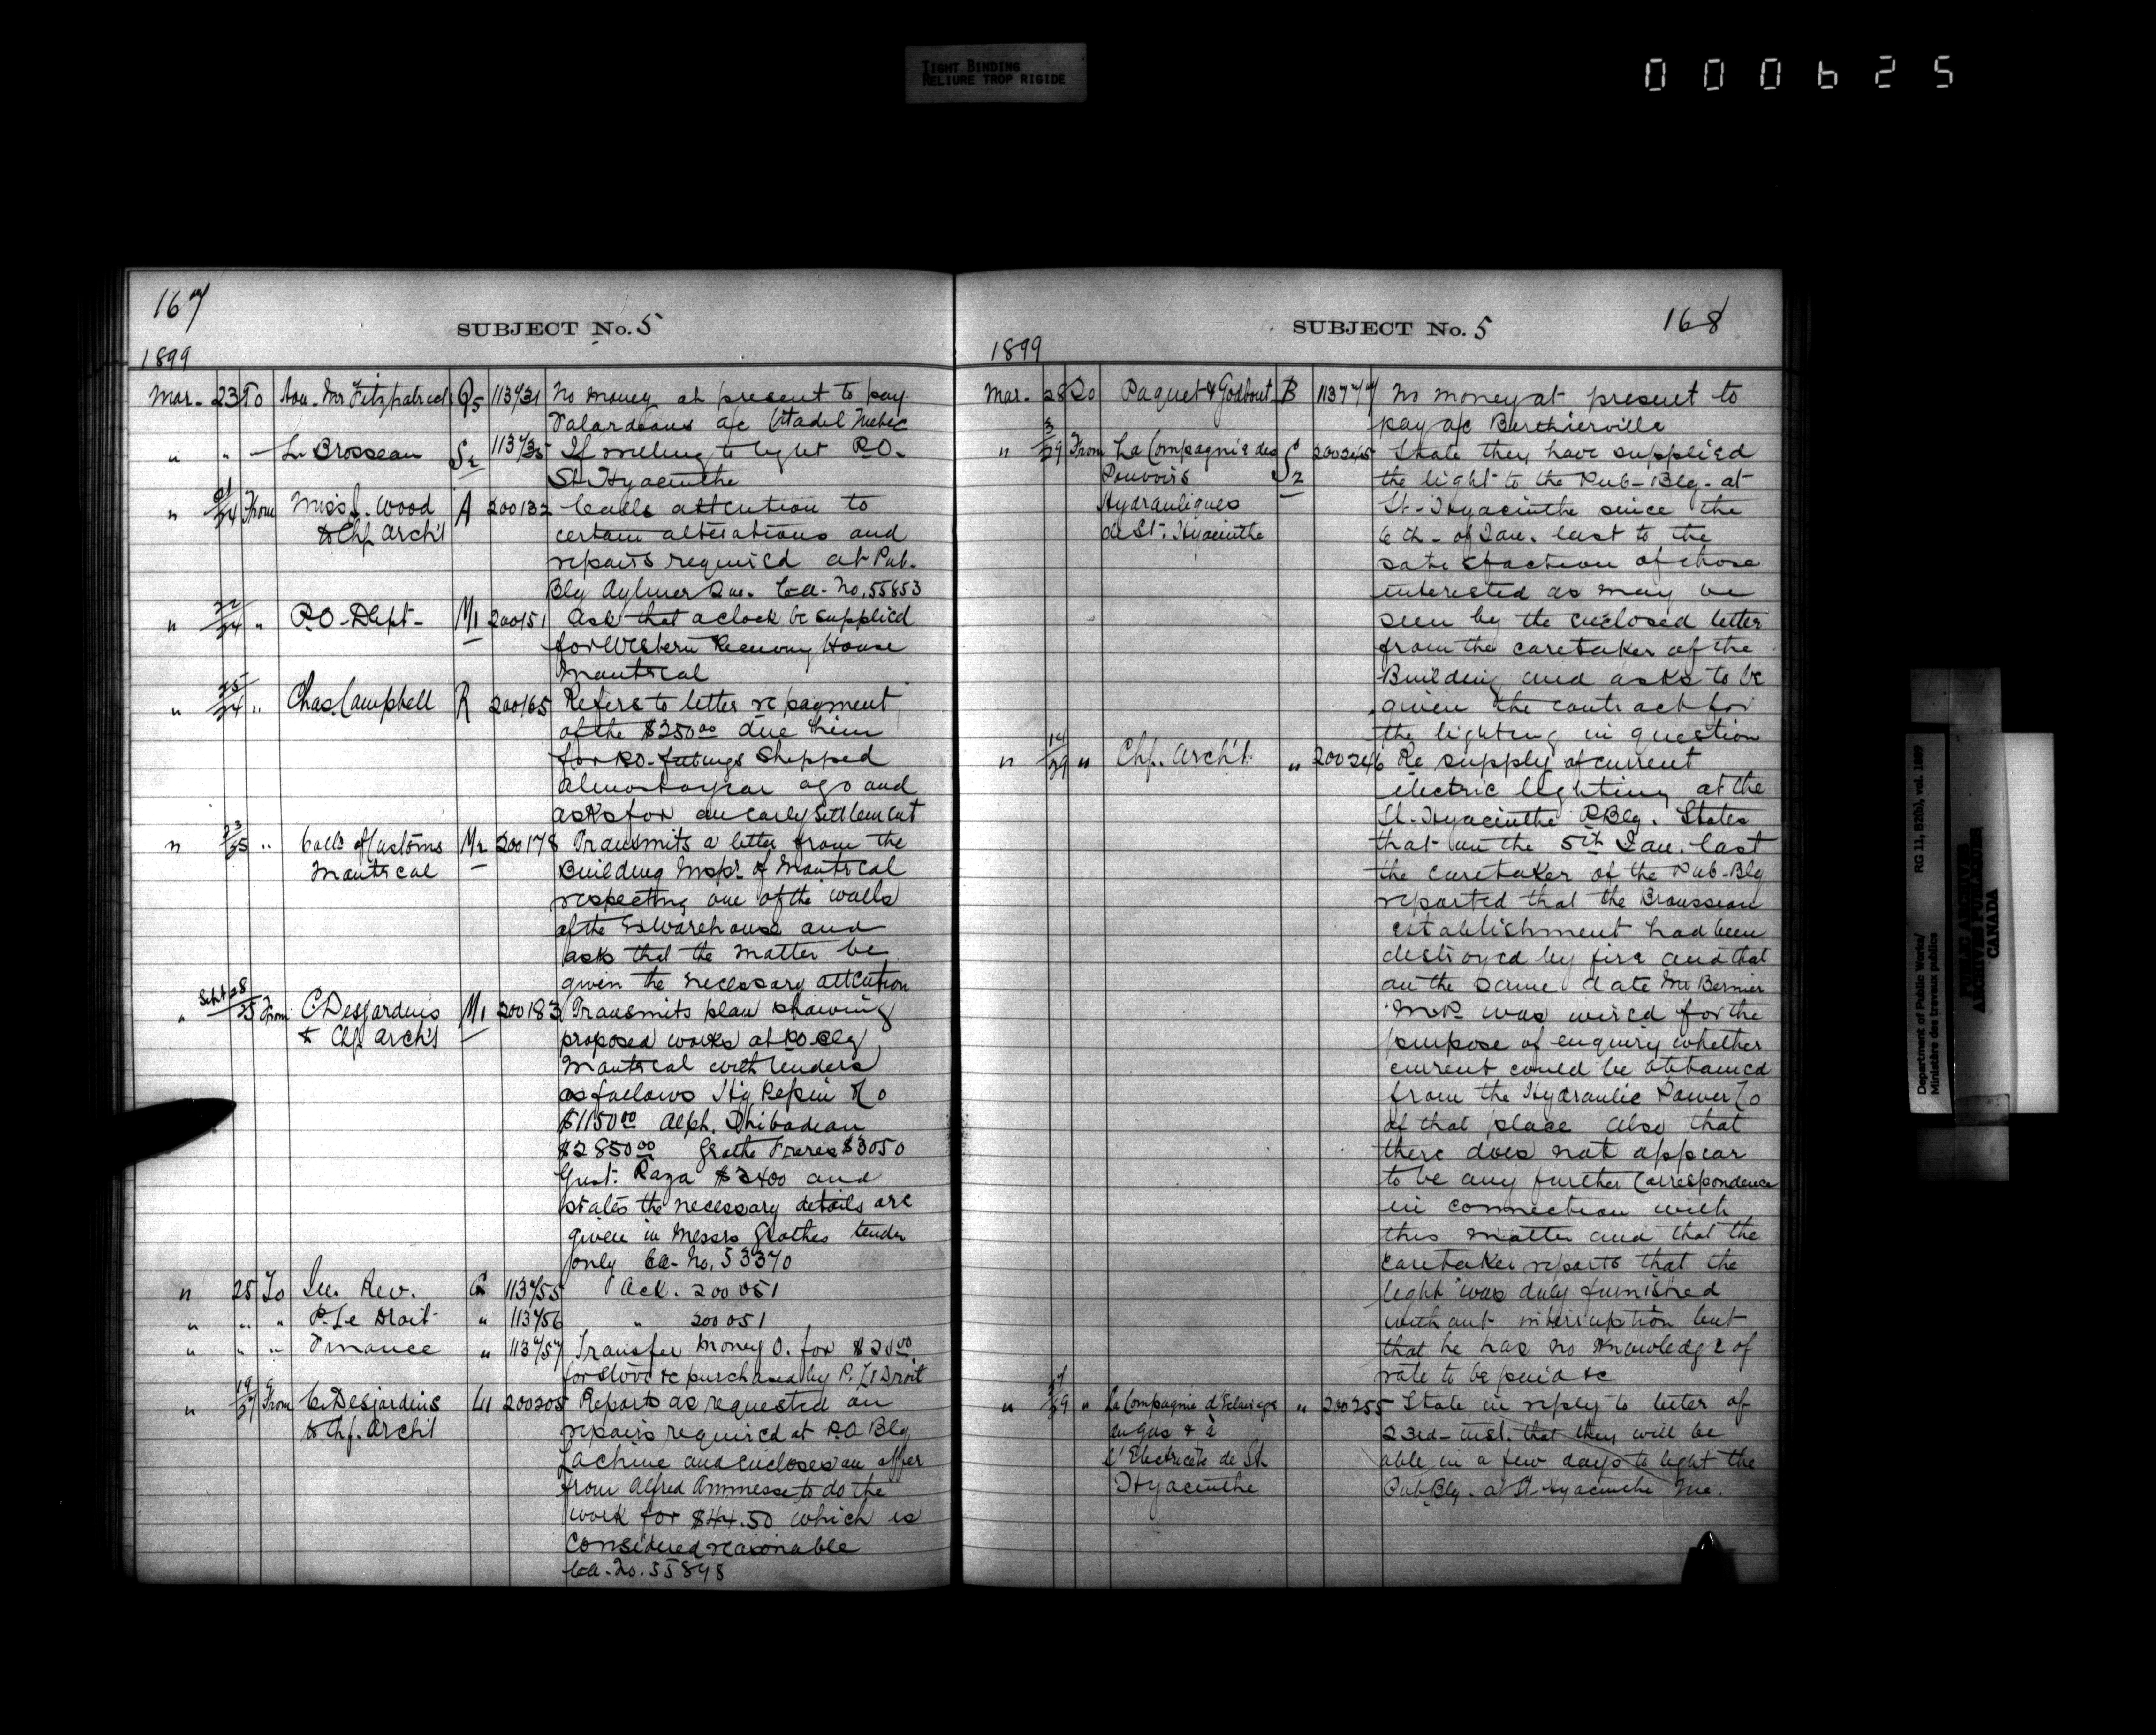 TIGHT BINDING
RELIURE TROP RIGIDE
000625
167
SUBJECT No. 5
1899
Mar. 23 To Hon. Mr Fitzpatrick Q5 113431 No money at present to pay
Palardeaus a/c Citadel Quebec
" " L. Brosseau S2 113435 If willing to light P.O.
St. Hyacinthe
" 21/24 From Miss J. Wood A 200132 Calls attention to
& Chf Arch't certain alterations and
repairs required at Pub.
Blg Aylmer Que. Ca. No. 55853
" 22/24 " P.O. Dept. M1 200151 Ask that a clock be supplied
for Western Receiving House
Montreal
" 25/24 " Chas. Campbell R 200165 Refers to letter re payment
of the $250 00 due him
for P.O. fittings Shipped
almost a year ago and
asks for an early settlement
" 23/25 " Coll. of Customs M2 200178 Transmits a letter from the
Montreal Building Insp'r of Montreal
respecting one of the walls
of the Ex Warehouse and
asks that the matter be
given the necessary attention
" Sept 28/25 From C. Desjardins M1 200183 Transmits plan showing
& Chf Arch't proposed works at P.O. Blg
Montreal with tenders
as follows Hy Pepin & Co
$1150 00 Alph. Thibodeau
$2850 00 Grothe Freres $3050
Gust. Raza $2400 and
states the necessary details are
given in Messrs Grothes tender
only Ca. No. 53370
" 25 To In. Rev. Q 113455 Ack. 200051
" " " P. Le Droit " 113456 " 200051
" " " Finance " 113457 Transfer Money O. for $20 00
for stove &c purchased by P. Le Droit
" 19/27 From C. Desjardins L1 200205 Reports as requested on
& Chf. Arch't repairs required at P.O. Blg
Lachine and encloses an offer
from Alfred Ammesse to do the
work for $44.50 which is
considered reasonable
Ca. No. 55848
168
SUBJECT No. 5
1899
Mar. 28 To Paquet & Godbout B 113474 No money at present to
pay a/c Berthierville
" 3/29 From La Compagnie des S2 200245 State they have supplied
Pouvoirs the light to the Pub. Blg. at
Hydrauliques St. Hyacinthe since the
de St. Hyacinthe 6th of Jan. last to the
satisfaction of those
interested as may be
seen by the enclosed letter
from the caretaker of the
Building and asks to be
given the contract for
the lighting in question
" 14/29 " Chf. Arch't " 200246 Re supply of current
electric lighting at the
St. Hyacinthe P. Blg. States
that on the 5th Jan. last
the caretaker of the Pub. Blg
reported that the Brousseau
establishment had been
destroyed by fire and that
on the same date Mr Bernier
M.P. was wired for the
purpose of enquiry whether
current could be obtained
from the Hydraulic Power Co
of that place also that
there does not appear
to be any further Correspondence
in connection with
this matter and that the
caretaker reports that the
light was duly furnished
without interruption but
that he has no knowledge of
rate to be paid &c
" 29 " La Compagnie d'Eclairage " 200255 State in reply to letter of
au Gas & à 23rd inst. that they will be
l'Electricité de St. able in a few days to light the
Hyacinthe Pub. Blg. at St. Hyacinthe Que.
Department of Public Works/
Ministère des travaux publics
RG 11, B2(b), vol. 1889
PUBLIC ARCHIVES
ARCHIVES PUBLIQUES
CANADA